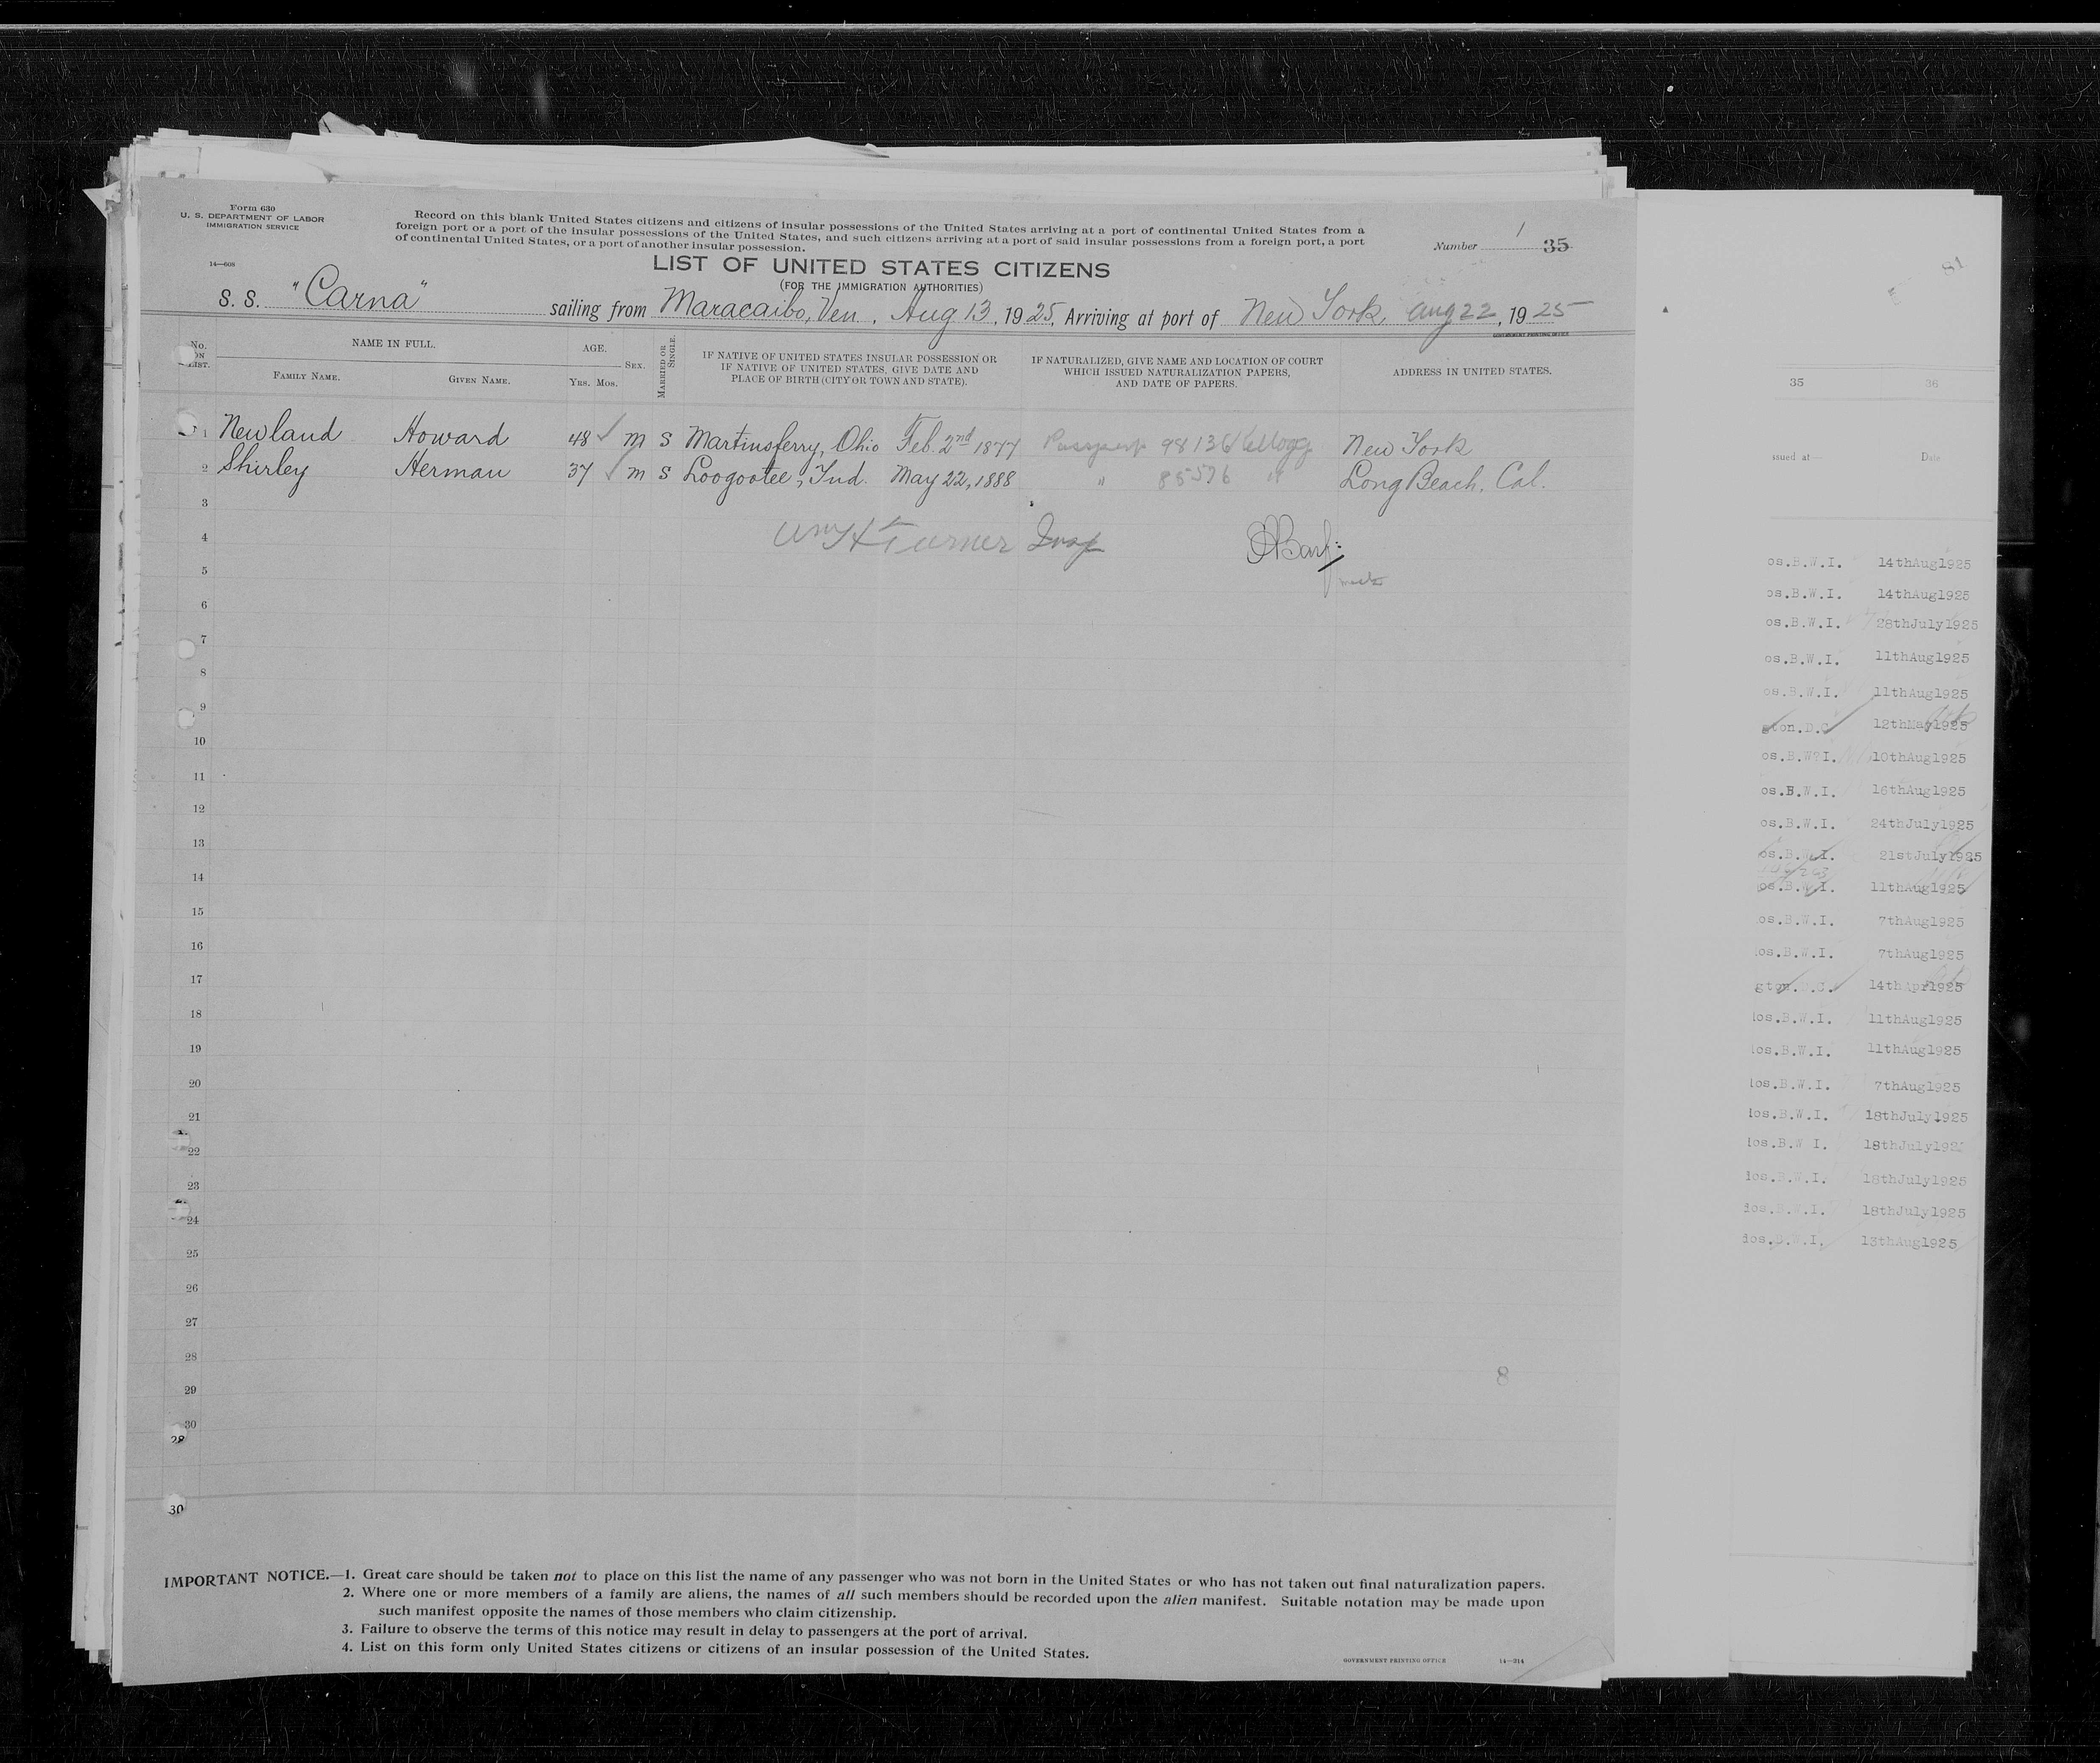 Form 630
U. S. DEPARTMENT OF LABOR
IMMIGRATION SERVICE
14—608
Record on this blank United States citizens and citizens of insular possessions of the United States arriving at a port of continental United States from a
foreign port or a port of the insular possessions of the United States, and such citizens arriving at a port of said insular possessions from a foreign port, a port
of continental United States, or a port of another insular possession.
Number 1 35
LIST OF UNITED STATES CITIZENS
(FOR THE IMMIGRATION AUTHORITIES)
S. S. "Carna" sailing from Maracaibo, Ven., Aug 13, 1925, Arriving at port of New York, Aug 22, 1925
GOVERNMENT PRINTING OFFICE
No. ON LIST.
NAME IN FULL.
FAMILY NAME.
GIVEN NAME.
AGE.
YRS. MOS.
SEX.
MARRIED OR SINGLE.
IF NATIVE OF UNITED STATES INSULAR POSSESSION OR
IF NATIVE OF UNITED STATES, GIVE DATE AND
PLACE OF BIRTH (CITY OR TOWN AND STATE).
IF NATURALIZED, GIVE NAME AND LOCATION OF COURT
WHICH ISSUED NATURALIZATION PAPERS,
AND DATE OF PAPERS.
ADDRESS IN UNITED STATES.
1 Newland Howard 48 m S Martinsferry, Ohio Feb. 2nd 1877 Passport 98136 Kellogg New York
2 Shirley Herman 37 m S Loogootee, Ind. May 22, 1888 " 85576 " Long Beach, Cal.
3
4 Wm H Turner Insp
5
6
7
8
9
10
11
12
13
14
15
16
17
18
19
20
21
22
23
24
25
26
27
28
29
30
28
30
8
IMPORTANT NOTICE.—1. Great care should be taken not to place on this list the name of any passenger who was not born in the United States or who has not taken out final naturalization papers.
2. Where one or more members of a family are aliens, the names of all such members should be recorded upon the alien manifest. Suitable notation may be made upon
such manifest opposite the names of those members who claim citizenship.
3. Failure to observe the terms of this notice may result in delay to passengers at the port of arrival.
4. List on this form only United States citizens or citizens of an insular possession of the United States.
GOVERNMENT PRINTING OFFICE 14—314
81
35 36
issued at— Date
os.B.W.I. 14thAug1925
os.B.W.I. 14thAug1925
os.B.W.I. 28thJuly1925
os.B.W.I. 11thAug1925
os.B.W.I. 11thAug1925
gton.D.C 12thMay1925
os.B.W?I. 10thAug1925
os.B.W.I. 16thAug1925
os.B.W.I. 24thJuly1925
os.B.W.I. 21stJuly1925
os.B.W.I. 11thAug1925
os.B.W.I. 7thAug1925
los.B.W.I. 7thAug1925
gton.D.C. 14thApr1925
los.B.W.I. 11thAug1925
los.B.W.I. 11thAug1925
los.B.W.I. 7thAug1925
los.B.W.I. 18thJuly1925
los.B.W I. 18thJuly192
dos.B.W.I. 18thJuly1925
dos.B.W.I. 18thJuly1925
dos.B.W.I. 13thAug1925